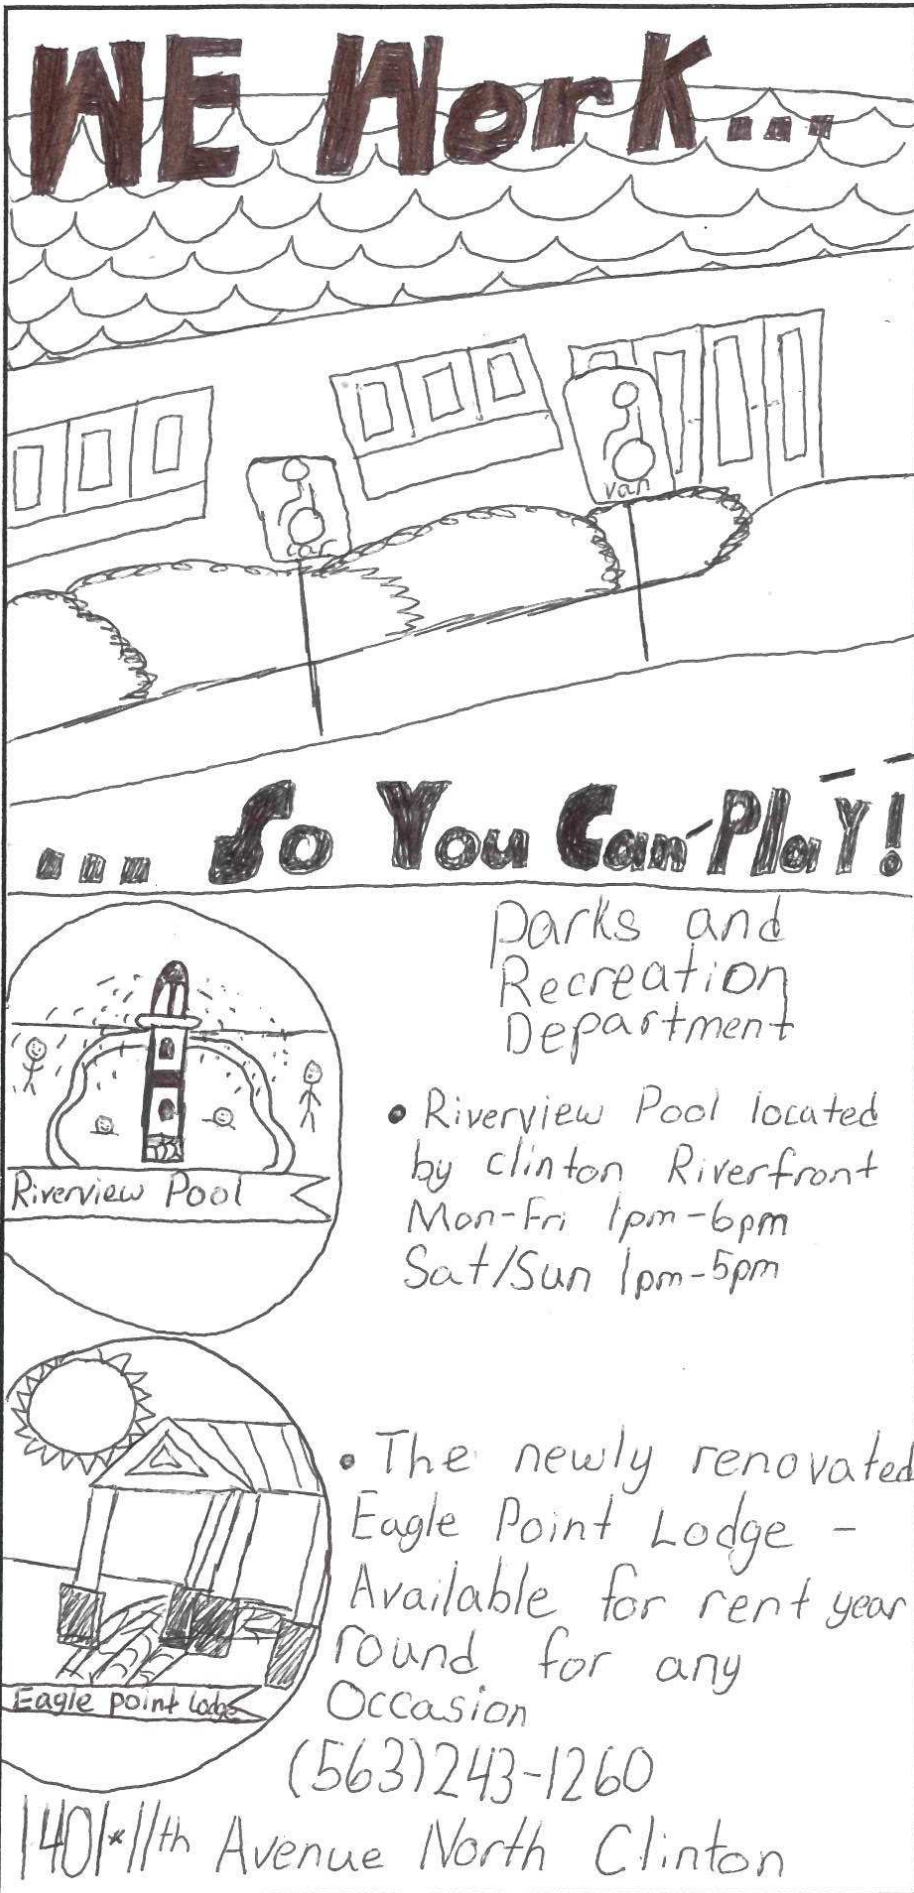 WE Work...
van
... So You Can Play!
Parks and
Recreation
Department
• Riverview Pool located
by Clinton Riverfront
Mon-Fri 1pm-6pm
Sat/Sun 1pm-5pm
Riverview Pool
• The newly renovated
Eagle Point Lodge -
Available for rent year
round for any
Occasion
Eagle point lodge
(563)243-1260
1401*11th Avenue North Clinton